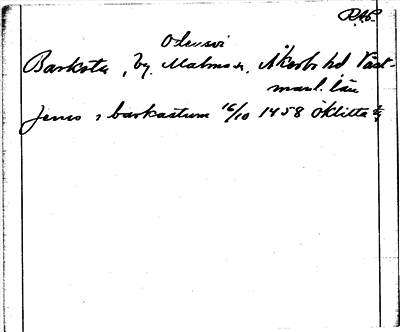 RAp.
Odensvi
Barksta, by. Malmsn, Åkerb. hd Väst-
manl. län
Jenis i barkastum 16/10 1458 Öklitta